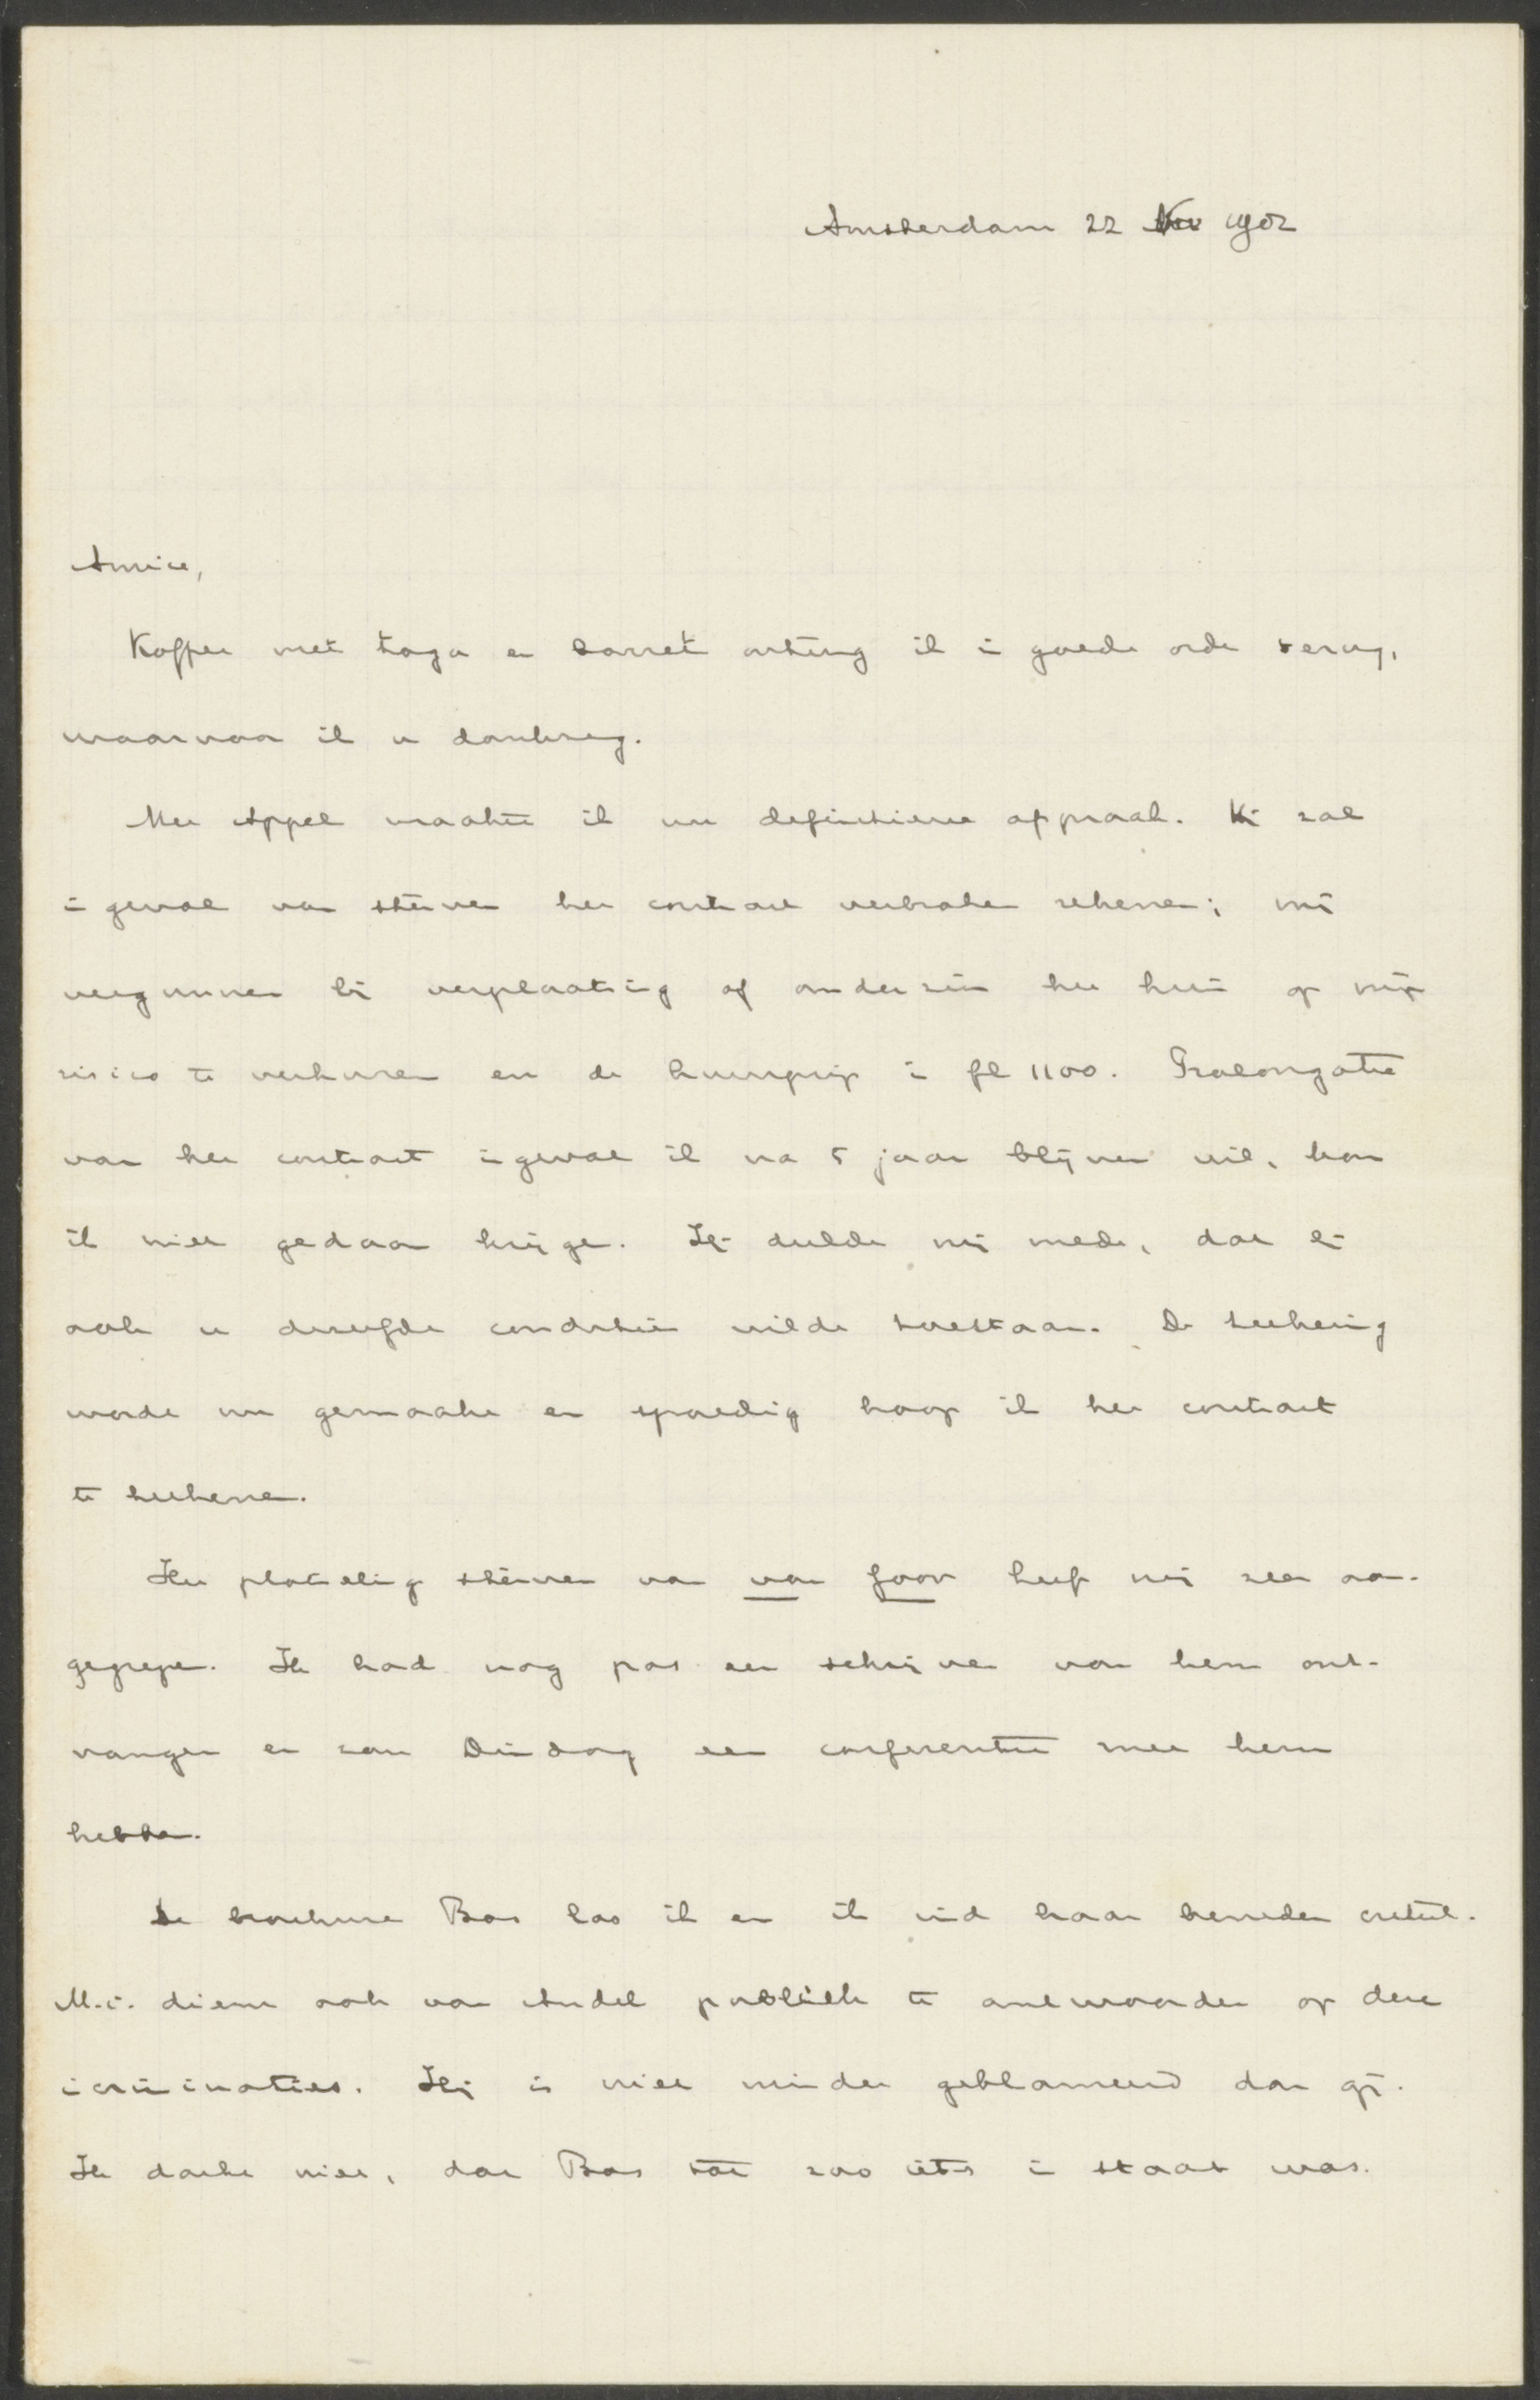 Amsterdam 22 Nov 1902
Amice,
Koffer met toga en baret ontving ik in goede orde terug,
waarvoor ik u dankzeg.
Met Appel maakte ik nu definitieve afspraak. Hij zal
in geval van sterven het contract verbroken rekenen; mij
vergunnen bij verplaatsing of anderszins het huis op mijn
risico te verhuren en de huurprijs is fl 1100. Prolongatie
van het contract ingeval ik na 5 jaar blijven wil, kon
ik niet gedaan krijgen. Hij deelde mij mede, dat hij
ook u dezelfde conditiën wilde toestaan. De teekening
wordt nu gemaakt en spoedig hoop ik het contract
te teekenen.
Het plotseling sterven van van Goor heeft mij zeer aan-
gegrepen. Ik had nog pas een schrijven van hem ont-
vangen en zou Dinsdag een conferentie met hem
hebben.
De brochure Bos las ik en ik vind haar beneden critiek.
M.i. dient ook van Andel publiek te antwoorden op deze
incriminaties. Hij is niet minder geblameerd dan gij.
Ik dacht niet, dat Bos tot zoo iets in staat was.